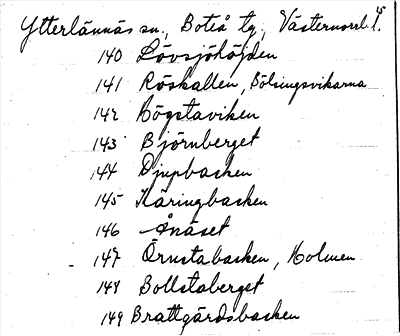 Ytterlännäs sn., Boteå tg., Västernorrl. l. 15
140 Lövsjöhöjden
141 Röskallen, Bölsingsvikarna
142 Högstaviken
143 Björnberget
144 Djupbacken
145 Käringbacken
146 Ånäset
147 Örnstabacken, Holmen
148 Bollstaberget
149 Brattgårdsbacken